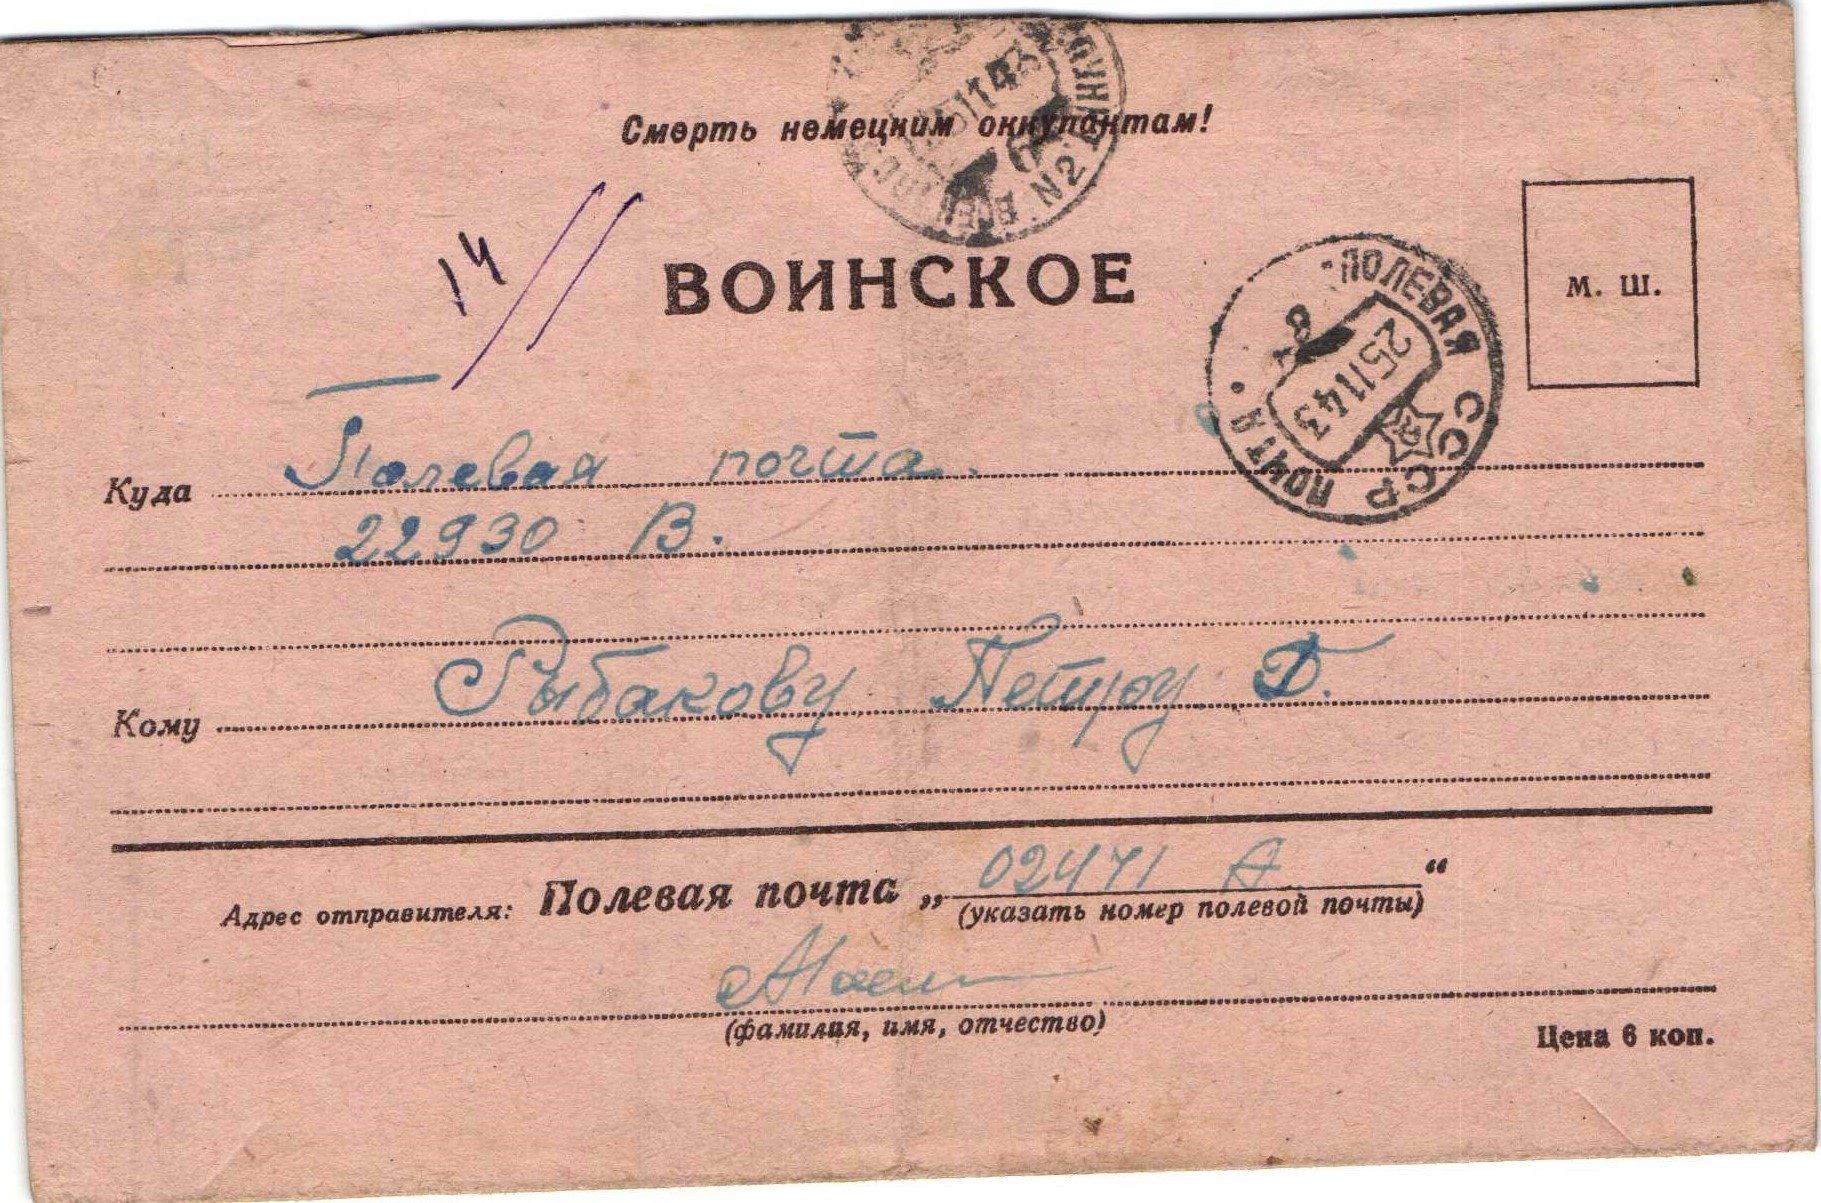 Смерть немецким оккупантам!
N2
ВОИНСКОЕ
14
М. Ш.
ПОЛЕВАЯ ПОЧТА СССР
25 11 43
Куда Полевая почта.
22930 В.
Кому Рыбакову Петру Д.
Адрес отправителя: Полевая почта „02471 А“
(указать номер полевой почты)
(фамилия, имя, отчество)
Цена 6 коп.